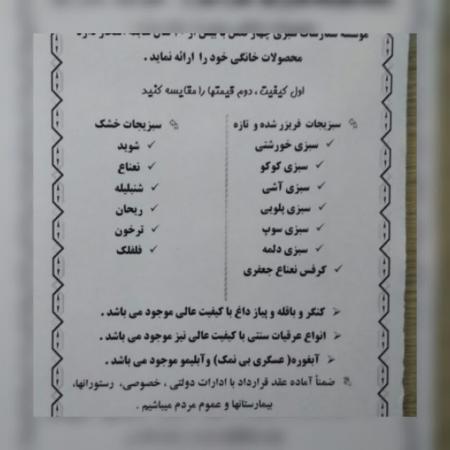 موسسه سفارشات سبزی چهار فصل با بیش از سال سابقه افتخار دارد
محصولات خانگی خود را ارائه نماید .
اول کیفیت ، دوم قیمتها را مقایسه کنید
سبزیجات فریزر شده و تازه
سبزی خورشتی
سبزی کوکو
سبزی آشی
سبزی پلویی
سبزی سوپ
سبزی دلمه
کرفس نعناع جعفری
سبزیجات خشک
شوید
نعناع
شنبلیله
ریحان
ترخون
فلفلک
کنگر و باقله و پیاز داغ با کیفیت عالی موجود می باشد .
انواع عرقیات سنتی با کیفیت عالی نیز موجود می باشد .
آبغوره( عسگری بی نمک) وآبلیمو موجود می باشد .
ضمناً آماده عقد قرارداد با ادارات دولتی ، خصوصی، رستورانها،
بیمارستانها و عموم مردم میباشیم .